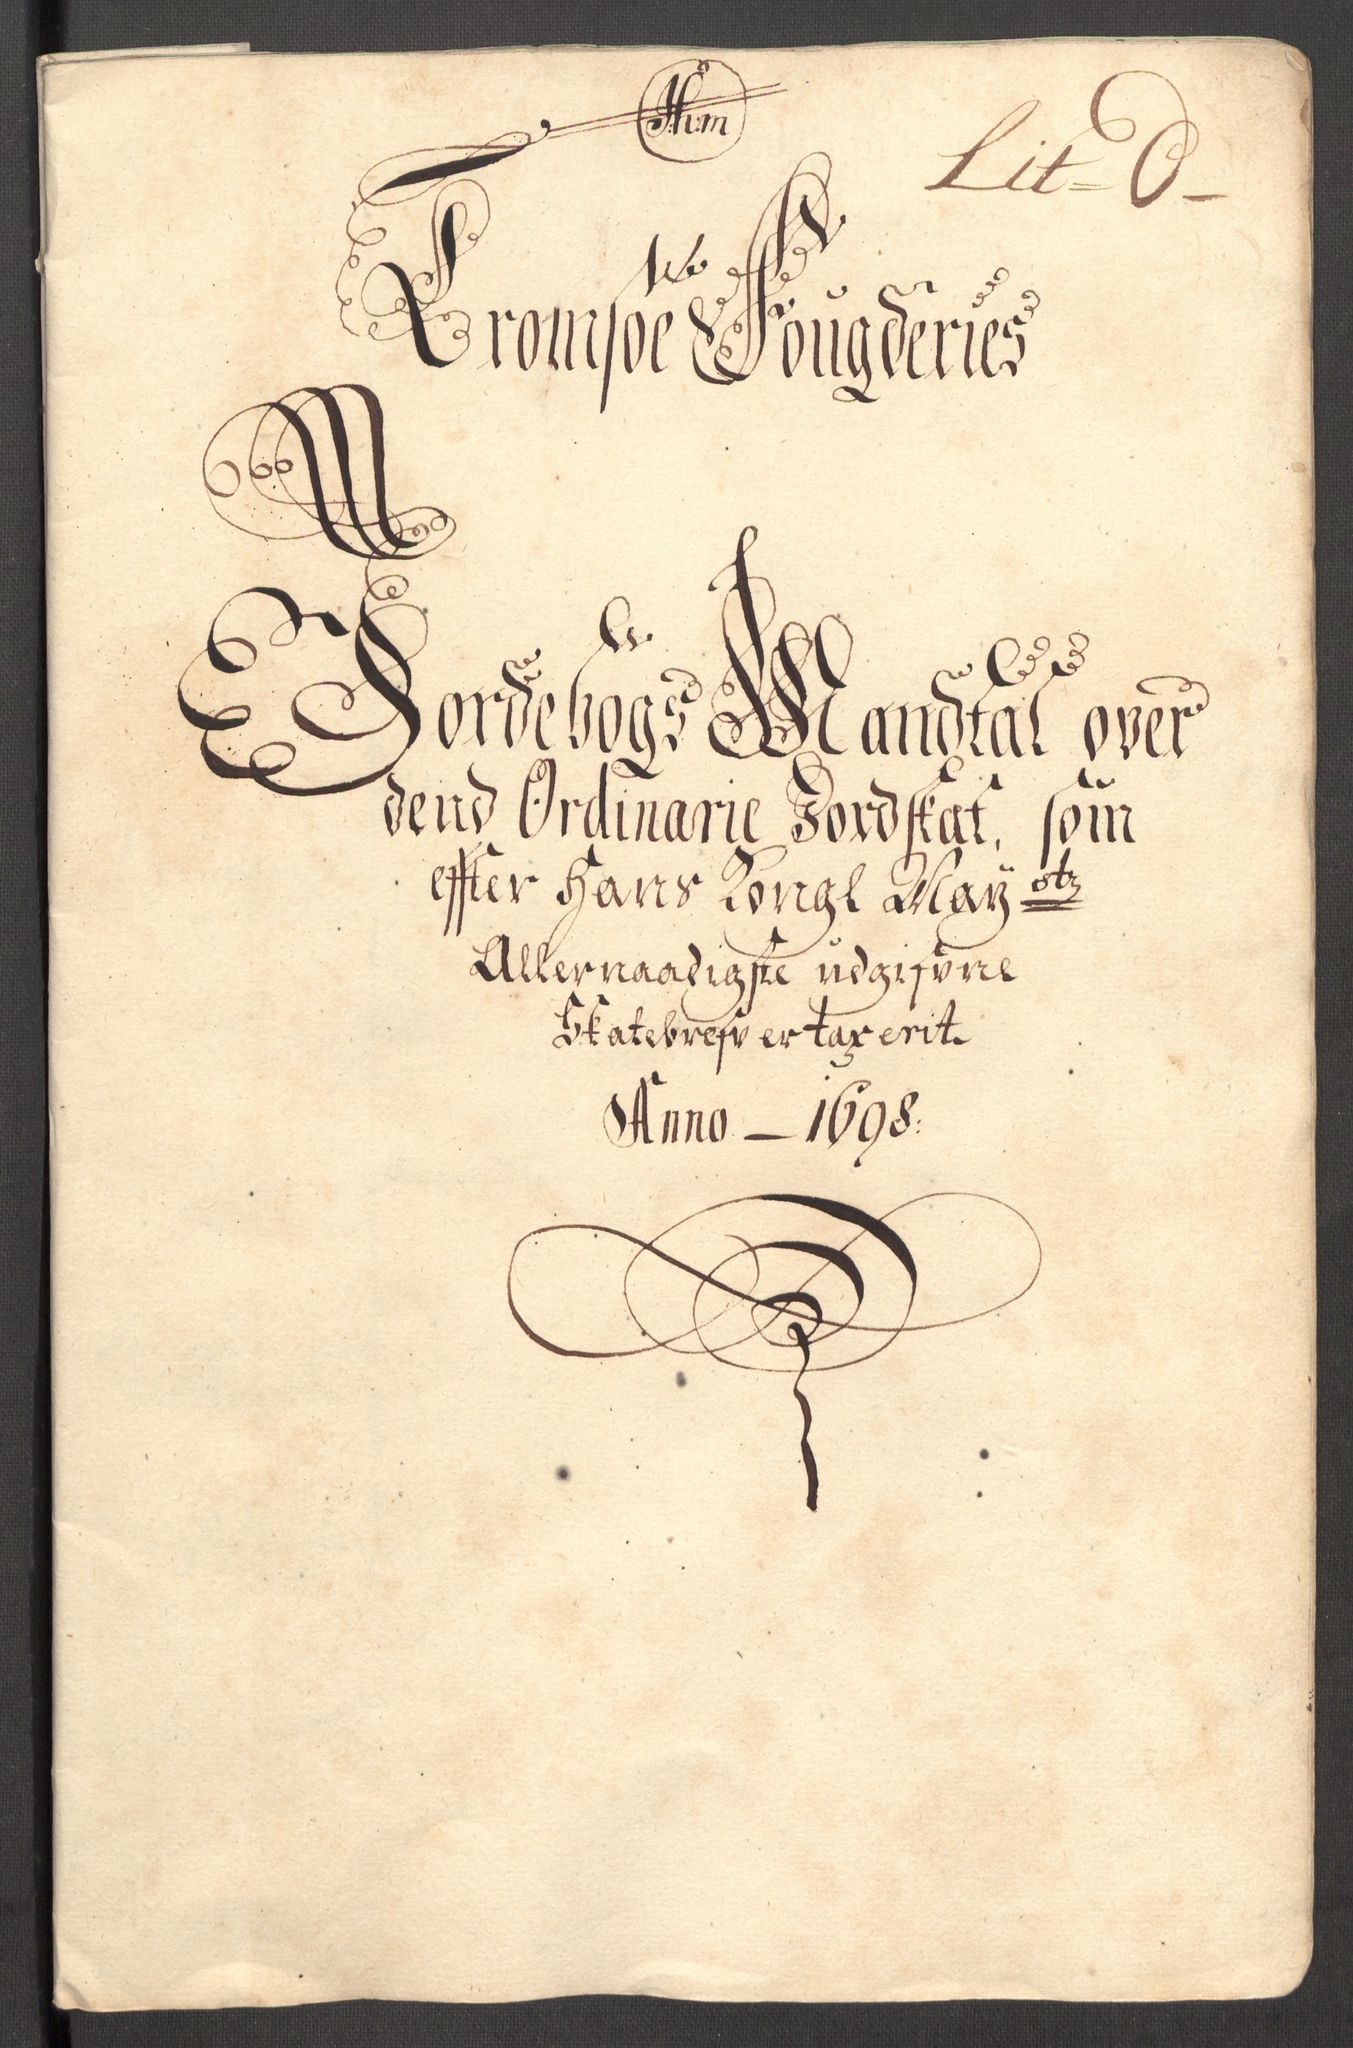 Lit = O -
Tromsøe Fougderies
Jordebogs Mandtal over
dend Ordinarie Jordskat, som
effter Hans Kongl May stz
Allernaadigste udgifvne
Skatebrefv er taxerit.
Anno — 1698: